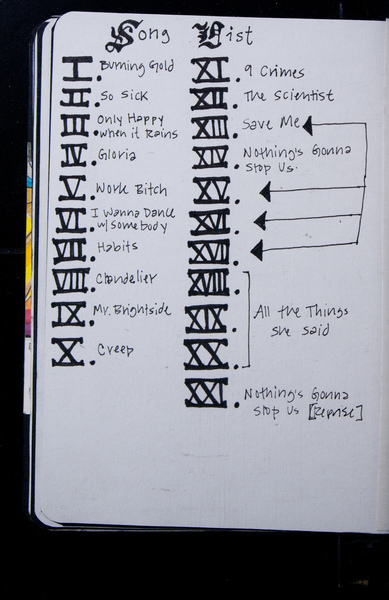 Song List
I. Burning Gold
II. So Sick
III. Only Happy
when it Rains
IV. Gloria
V. Work Bitch
VI. I Wanna Dance
w/ somebody
VII. Habits
VIII. Chandelier
IX. Mr. Brightside
X. Creep
XI. 9 Crimes
XII. The Scientist
XIII. Save Me
XIV. Nothing's Gonna
Stop Us.
XV.
XVI.
XVII.
XVIII.
XIX. All the Things
she said
XX.
XXI. Nothing's Gonna
Stop Us [Reprise]